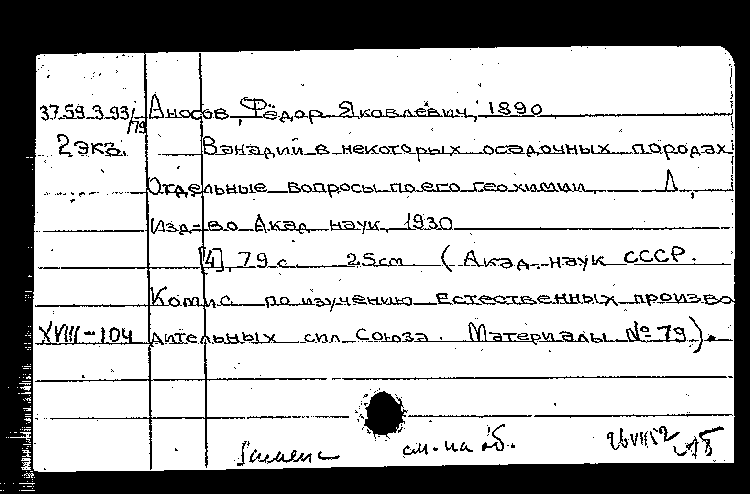 37.59.3.93/79 Аносов, Фёдор Яковлевич, 1890
2 экз. Ванадий в некоторых осадочных породах
Отдельные вопросы по его геохимии. Л,
Изд-во Акад наук, 1930
[4], 79 с 25см (Акад. наук СССР.
Комис по изучению естественных произво
XVIII-104 дительных сил Союза. Материалы № 79).
см. на об.